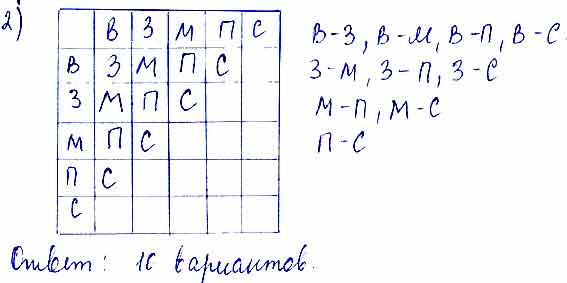 2)
В З М П С
В З М П С
З М П С
М П С
П С
С
В-З, В-М, В-П, В-С
З-М, З-П, З-С
М-П, М-С
П-С
Ответ: 10 вариантов.